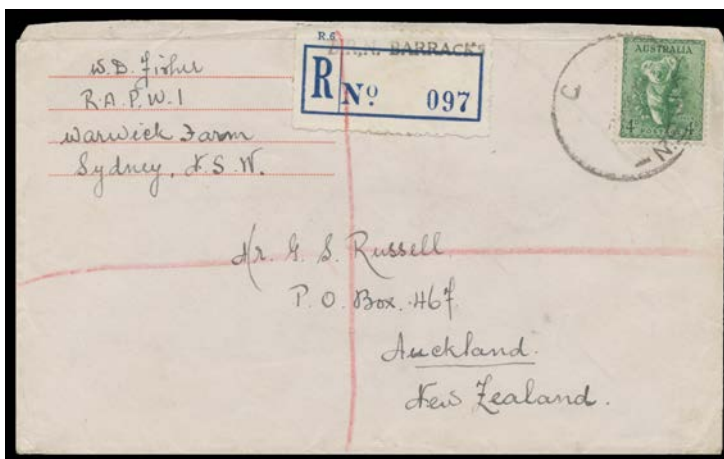 W. D. Fisher
R.A.P.W.I
Warwick Farm
Sydney, N.S.W.
R.6
BARRACKS
R No 097
AUSTRALIA
4
Mr. G. S. Russell
P. O. Box. 467
Auckland.
New Zealand.